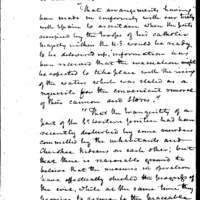 "That arrangements having
been made in conformity with our treaty
with Spain to ascertain when the posts
occupied by the troops of his catholic
majesty within the U.S. would be ready
to be delivered up; information has
been received that the evacuation might
be expected to take place with the rising
of the waters which was stated as a
requisite for the convenient removal
of their cannon and stores."
"That the tranquility of a
part of the So Western frontier had been
recently disturbed by some murders
committed by the inhabitants and
Cherokee Indians on each other; but
that there is reasonable ground to
believe that the measures in operation
have effectually checked the progress of
the evil, while at the same time they